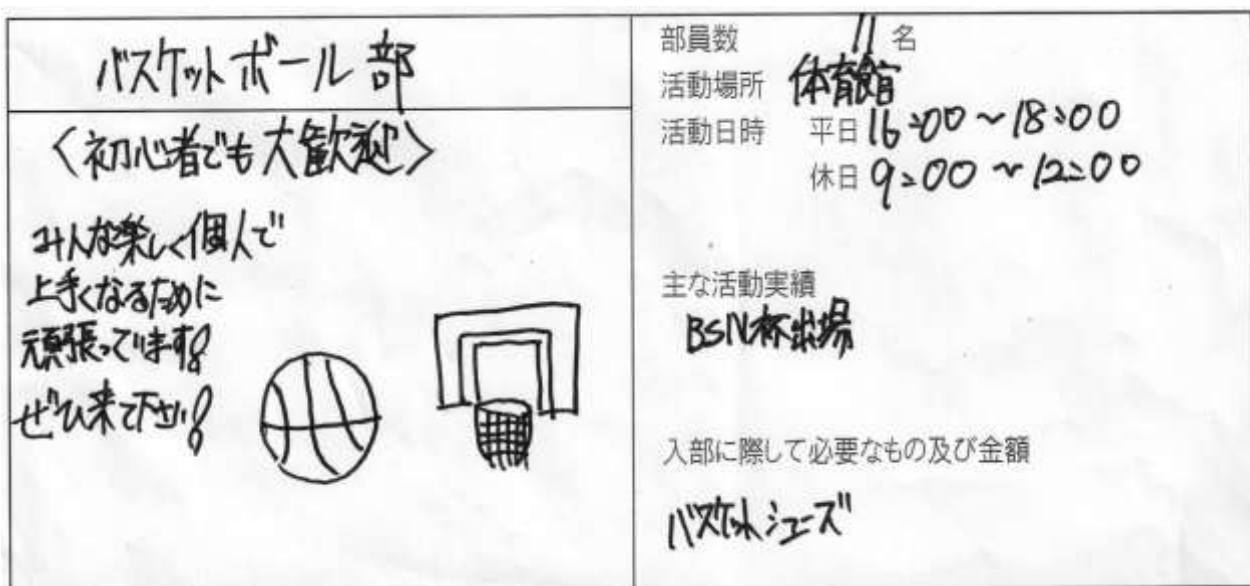 バスケットボール部
〈初心者でも大歓迎〉
みんな楽しく個人で
上手くなるために
頑張っています!
ぜひ来て下さい!
部員数 11 名
活動場所 体育館
活動日時 平日 16:00～18:00
休日 9:00～12:00
主な活動実績
BSN杯出場
入部に際して必要なもの及び金額
バスケットシューズ